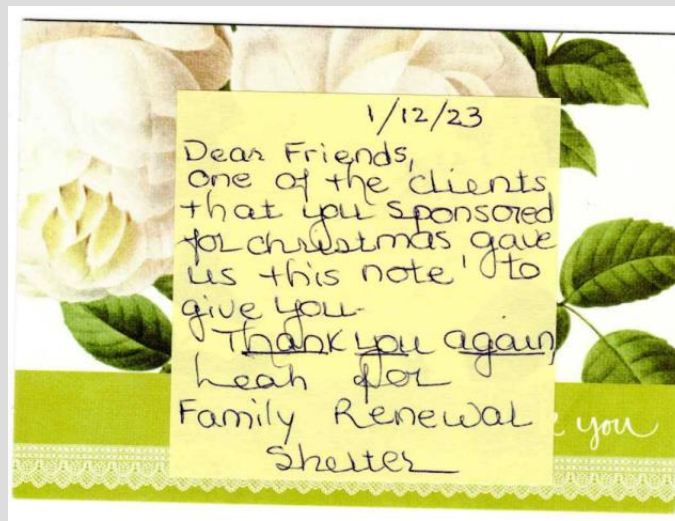 1/12/23
Dear Friends,
One of the clients
that you sponsored
for christmas gave
us this note to
give you.
Thank you again,
Leah for
Family Renewal
Shelter
you